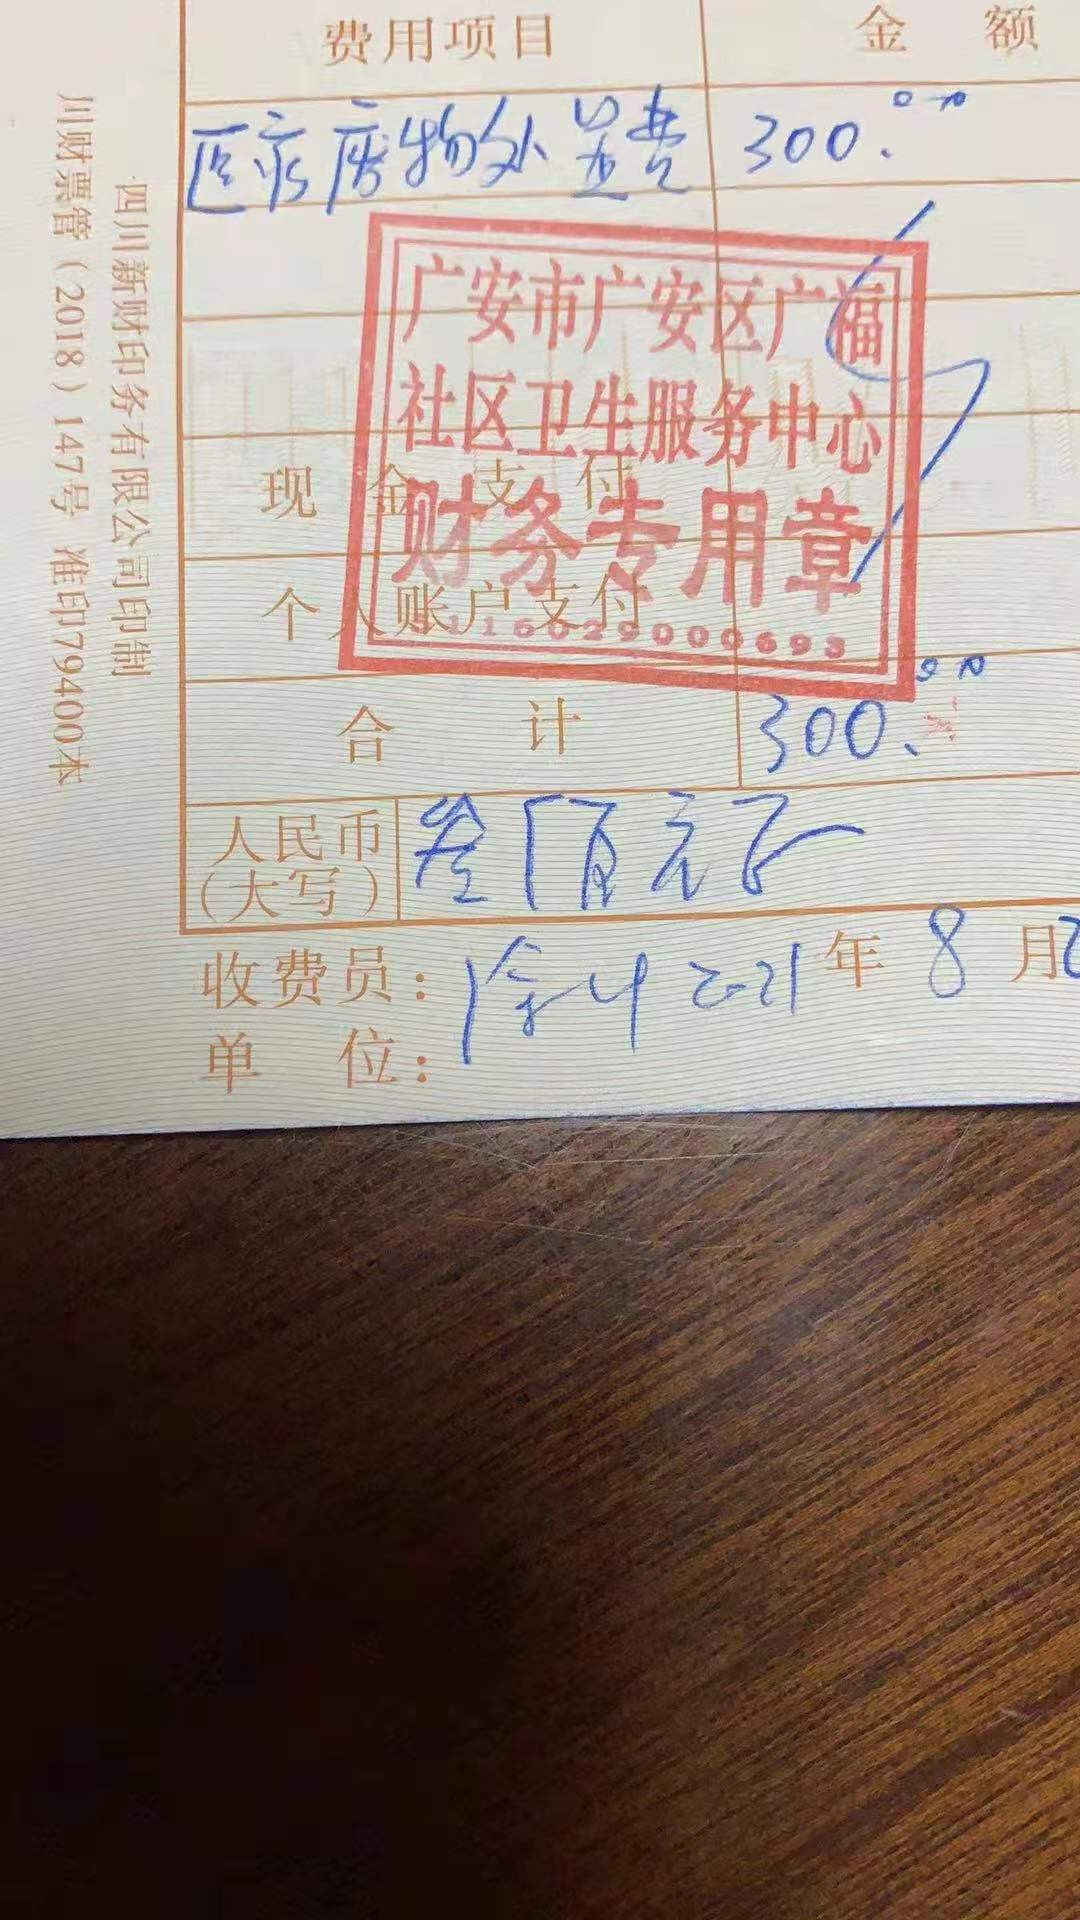 费用项目 金额
医疗废物处置费 300.00
广安市广安区广福
社区卫生服务中心
财务专用章
现金支付
个人账户支付
合计 300.00
人民币
(大写) 叁佰元正
收费员: 2021年8月2
单位:
四川新财印务有限公司印制
川财票管(2018)147号 准印79400本